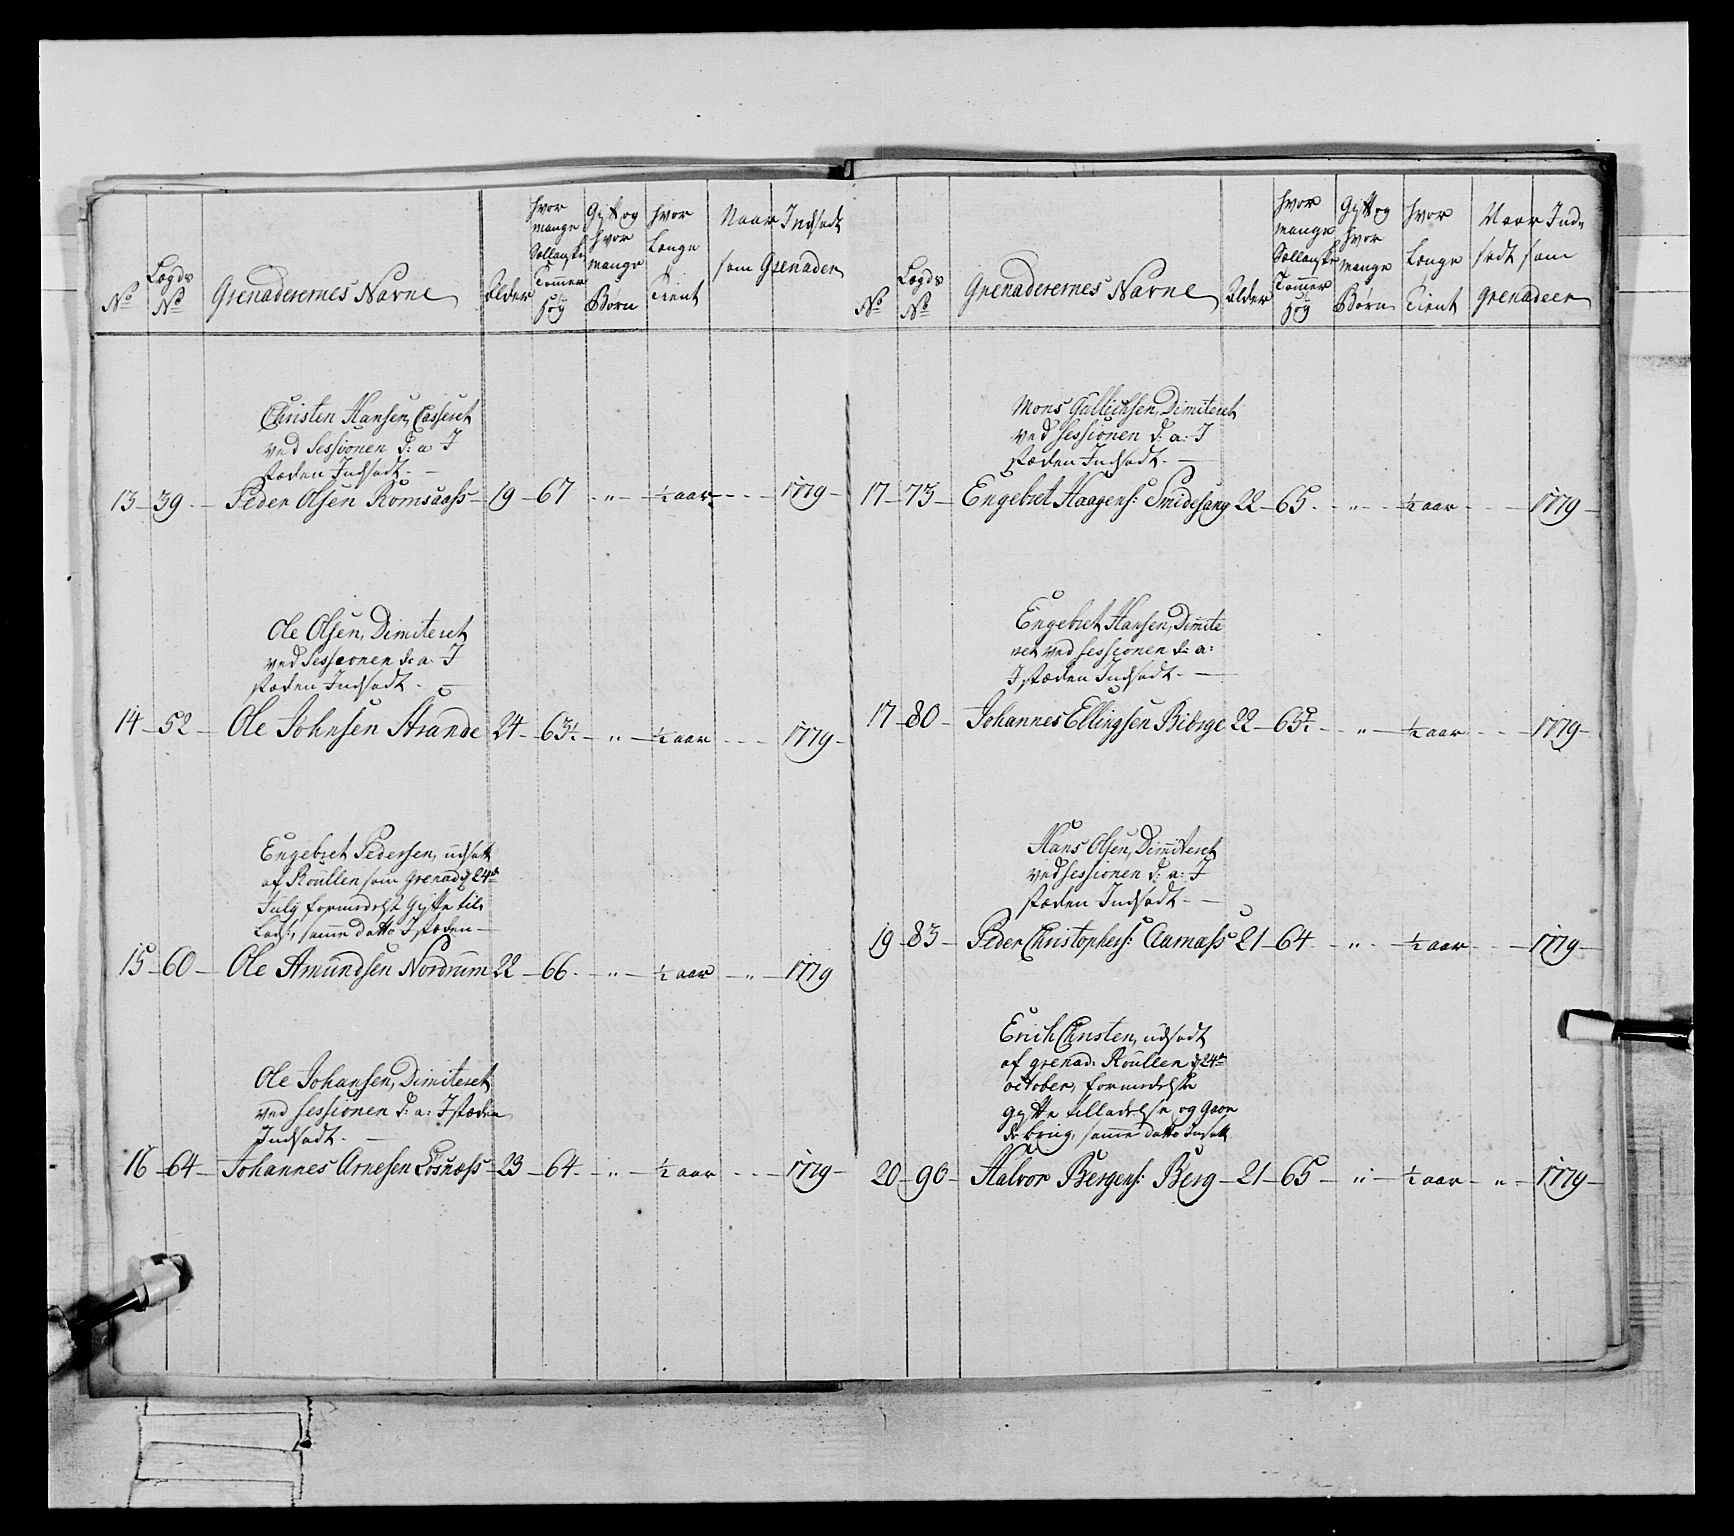 No
Lægds No
Grenaderernes Navne
Alder
hvor mange Sællanske Tommer høy
Gift og hvor mange Børn
hvor Længe Tient
Naar Indsadt som Grenader
Christen Hansen, Casseret
ved Sessionen d: a: I
stæden Indsadt. —
13 — 39 — Peder Olsen Romsaass — 19 — 67 — „ — ½ aar — — 1779 —
Ole Olsen, Dimiteret
ved Sessionen d: a: I
stæden Indsadt. —
14 — 52 — Ole Johnsen Strande 24 — 63½ — „ — ½ aar — — 1779 —
Engebret Pedersen, udsatt
af Roullen som Grenad: d 24de
July, formedelst Gifte til-
Lads:, samme datto I stæden —
15 — 60 — Ole Amundsen Nordrum 22 — 66 — „ — ½ aar — „ — 1779
Ole Johansen, Dimiteret
ved Sessionen d: a: I stæden
Indsadt. —
16 — 64 — Johannes Arnesen Losnæss — 23 — 64 — „ — ½ aar — — 1779 —
No
Lægds No
Grenaderernes Navne
Alder
hvor mange Sællanske Tommer høy
Gift og hvor mange Børn
hvor Længe Tient
Naar Ind-
sadt som
Grenadeer
Mons Gullichsen, Dimiteret
ved Sessionen d: a: I
stæden Indsadt. —
17 — 73 — Engebret Haagens: Smidesang 22 — 65 — „ — ½ aar — — 1779 —
Engebret Hansen, Dimite
ret ved Sessionen d: a:
I stæden Indsadt. —
17 — 80 — Johannes Ellingsen Biberge 22 — 65½ — „ — ½ aar — — 1779 —
Hans Olsen, Dimitteret
ved Sessionen d: a: I
stæden Indsadt. —
19 — 83 — Peder Christophers: Aamass 21 — 64 — „ — ½ aar — — 1779 —
Erich Christen, udsadt
af grenad: Roullen d 24de
october, formedelste
Gifte tilladelse, og Gaar
de brug, samme datto Insatt
20 — 90 — Halvor Bergens: Berg — 21 — 65 — „ — ½ aar — „ — 1779 —